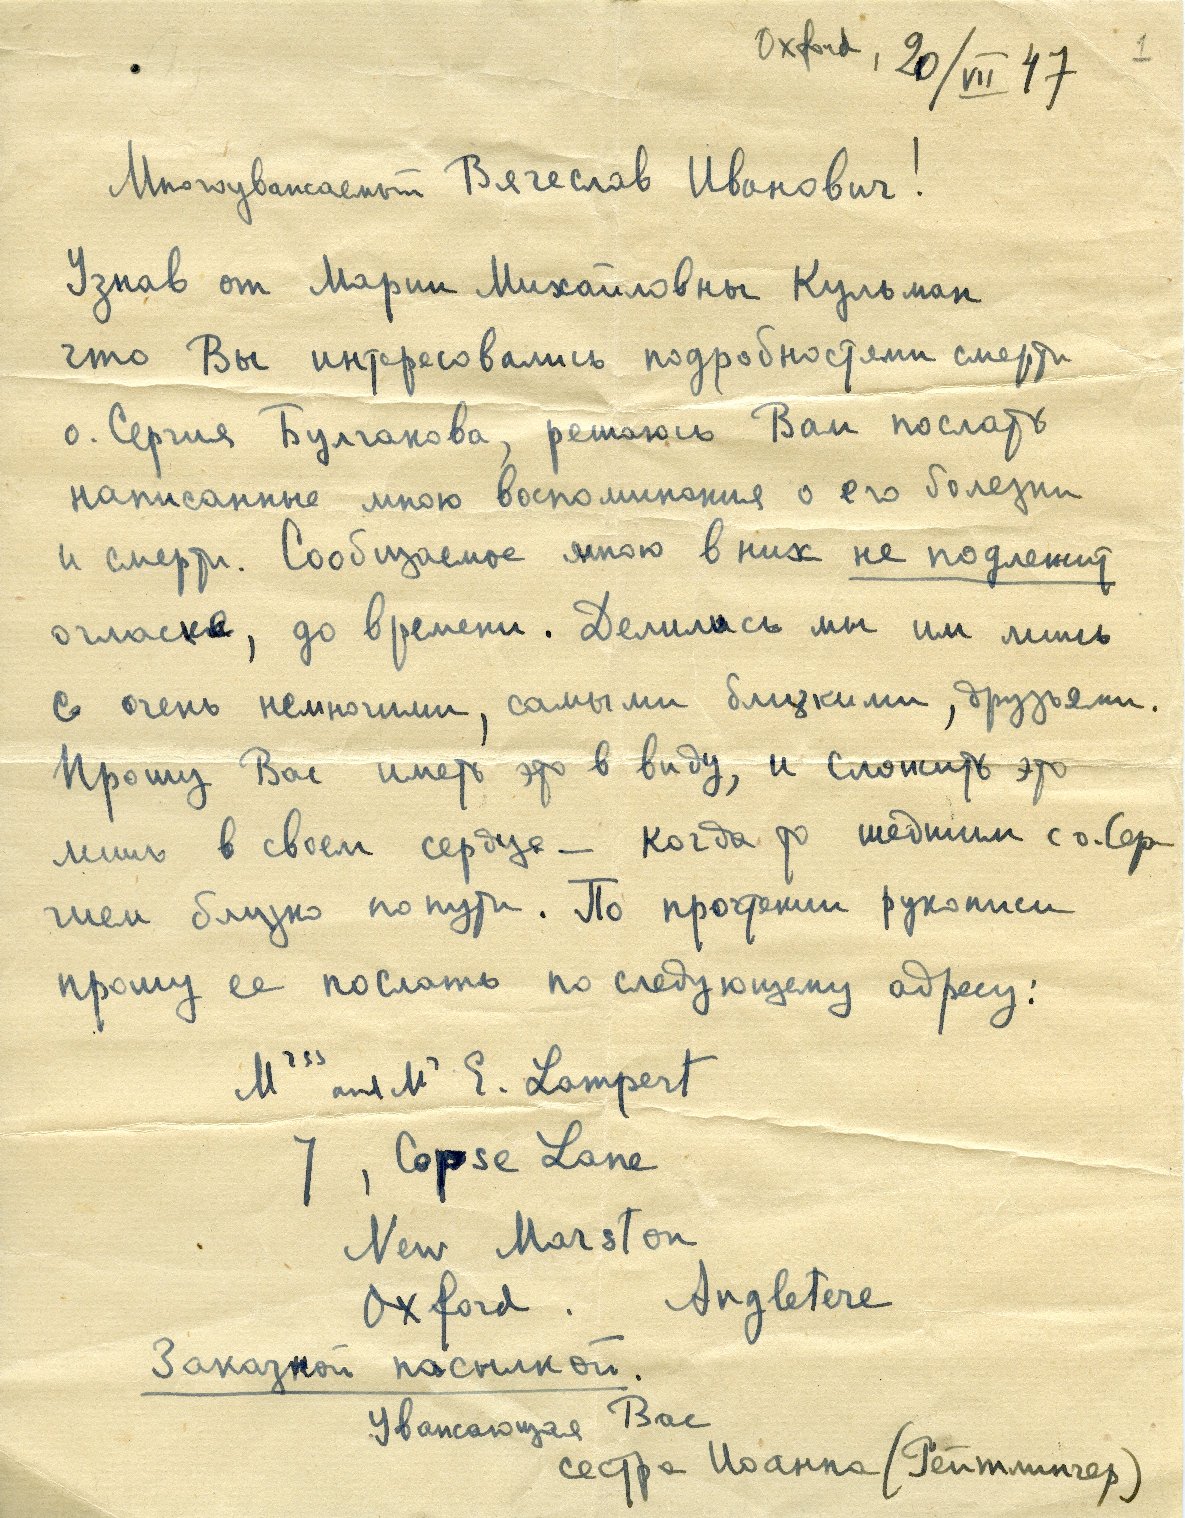 Oxford, 20/VII 47
1
Многоуважаемый Вячеслав Иванович!
Узнав от Марии Михайловны Кульман
что Вы интересовались подробностями смерти
о. Сергия Булгакова, решаюсь Вам послать
написанные мною воспоминания о его болезни
и смерти. Сообщаемое мною в них не подлежит
огласке, до времени. Делились мы им лишь
с очень немногими, самыми близкими, друзьями.
Прошу Вас иметь это в виду, и сложить это
лишь в своем сердце — когда то шедшим с о. Сер-
гием близко по пути. По прочтении рукописи
прошу ее послать по следующему адресу:
Mrss and Mr E. Lampert
7, Copse Lane
New Marston
Oxford. Angletere
Заказной посылкой.
Уважающая Вас
сестра Иоанна (Рейтлингер)